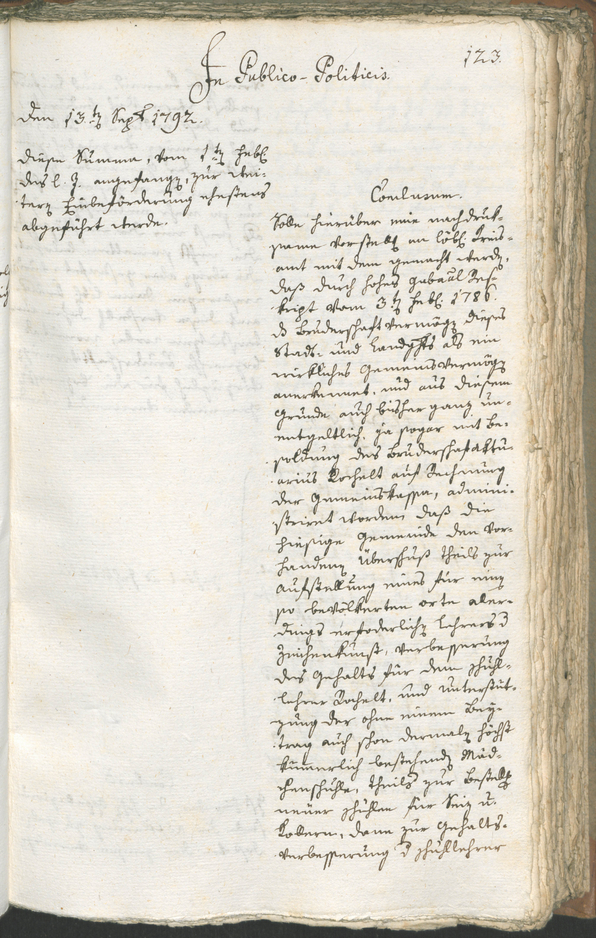 123.
In Publico-Politicis.
den 13.ten Sept. 1792.
diese Summa, vom 1ten Febr.
des l. J. angefangen, zur wei-
tern Einbeförderung ehestens
abgeführt werde.
Conclusum.
Solle hierüber eine nachdruk-
same Vorstell. an löbl. Kreis-
amt mit dem gemacht werden,
daß durch hohes Gubaal Res-
kript vom 3ten Febr. 1786.
d Bruderschaftvermögen dieses
Stadt- und Landgchts als ein
wirkliches Gemeinsvermögen
anerkennet, und aus diesem
Grunde auch bisher ganz un-
entgeltlich, ja sogar mit Be-
soldung des Bruderschaftaktu-
arius Kochelt auf Rechnung
der Gemeinskassa, admini-
strirt worden; daß die
hiesige Gemeinde den vor-
handenen Überschuß theils zur
Aufstellung eines für einen
so bevölkerten Orte aller-
dings erfoderlichen Lehrers d
Zeichenkunst, Verbesserung
des Gehalts für den Schul-
lehrer Kochelt, und Unterstüt-
zung der ohne einem Bey-
trag auch schon dermalen höchst
kümmerlich bestehenden Mäd-
chenschule, theils zur Bestell
neuer Schulen für Seiz u.
Kollern, dann zur Gehalts-
verbesserung d Schullehrer